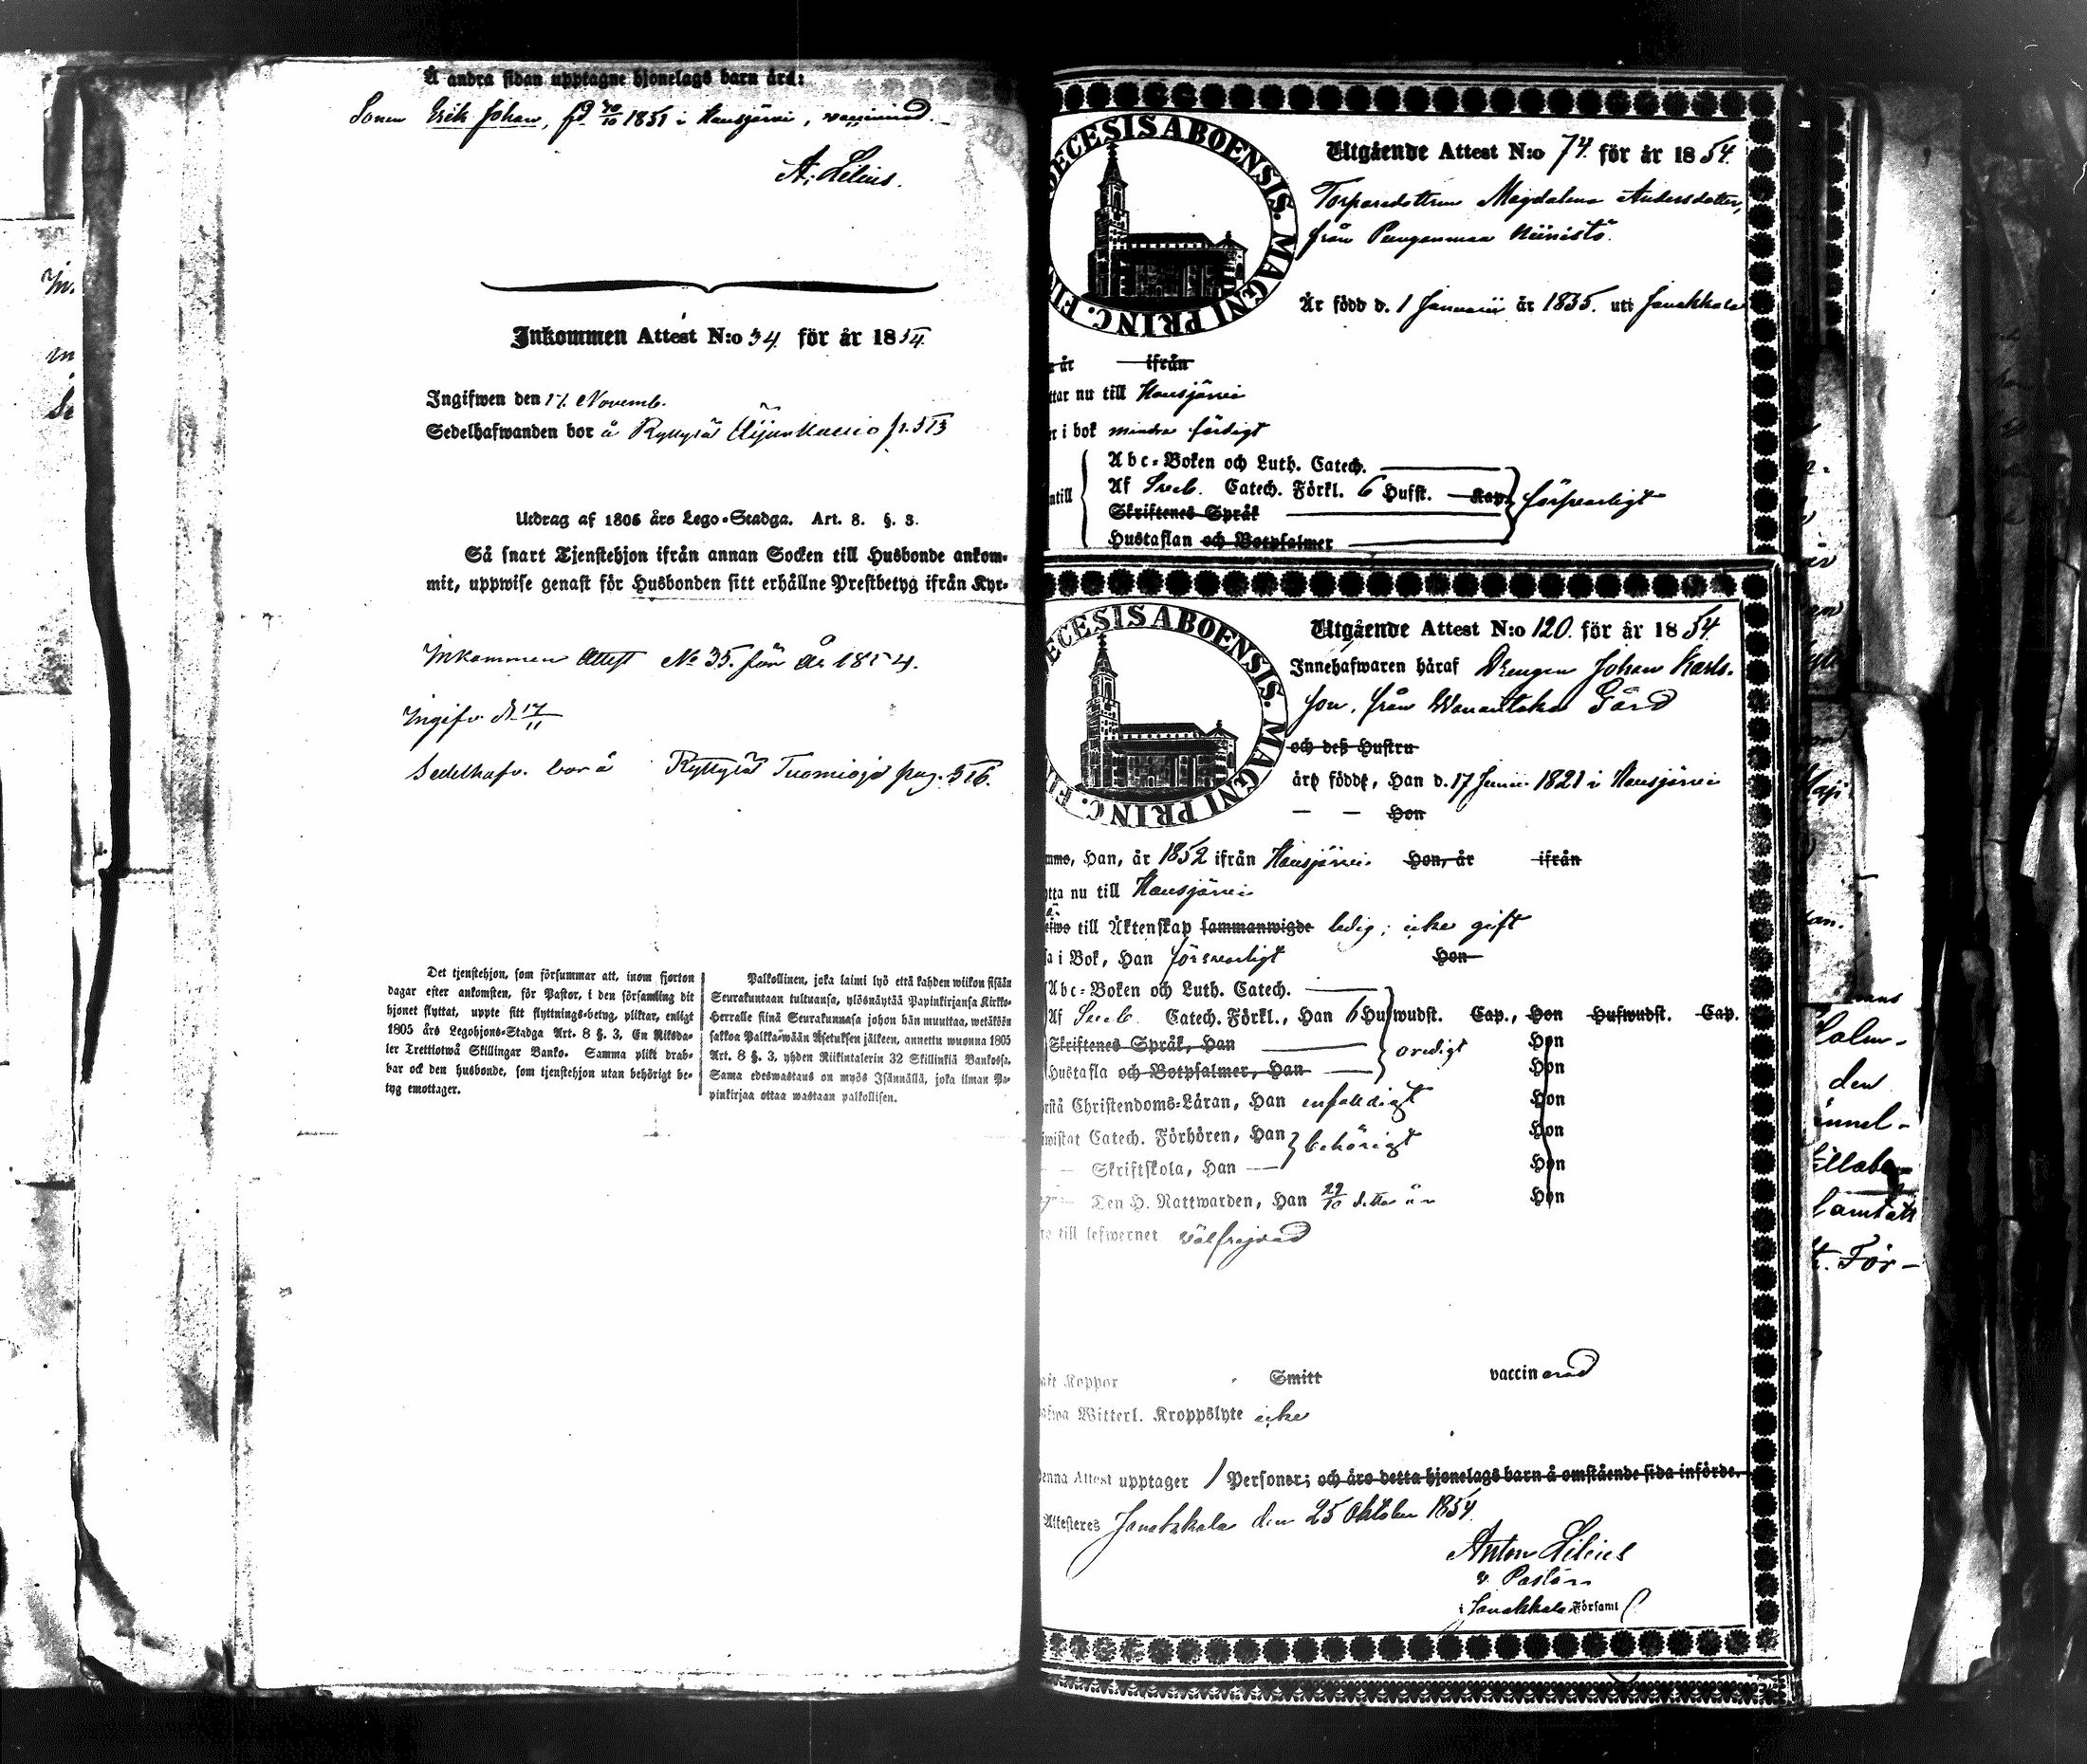 Å andra sidan upptagne hjonelags barn äro:
Sonen Erik Johan, fd 30/10 1851 i Hausjärvi, vaccinerad.
A. Lilius.
Inkommen Attest N:o 34. för år 1854.
Ingifwen den 17. Novemb.
Sedelhafwanden bor å Ryttylä Äijankuein p. 513
Utdrag af 1805 års Lego-Stadga. Art. 8. §. 3.
Så snart Tjenstehjon ifrån annan Socken till Husbonde ankom-
mit, uppwise genast för Husbonden sitt erhållne Prestbetyg ifrån Kyr-
Inkommen Attest No 35. för År 1854.
Ingifv. d. 17/11
Sedelhafv. bor å Ryttylä Tuomioja pag. 516.
Det tjenstehjon, som försummar att, inom fjorton
dagar efter ankomsten, för Pastor, i den församling dit
hjonet flyttat, uppte sitt flyttnings-betyg, pliktar, enligt
1805 års Legohjons-Stadga Art. 8 §. 3, En Riksda-
ler Trettiotwå Skillingar Banko. Samma plikt drab-
bar ock den husbonde, som tjenstehjon utan behörigt be-
tyg emottager.
Palkollinen, joka laimi lyö että kahden wiikon sisään
Seurakuntaan tultuansa, ylösnäytää Papinkirjansa Kirkko-
Herralle siinä Seurakunnasa johon hän muuttaa, wetäköön
sakkoa Palkka-wään Asetuksen jälkeen, annettu wuonna 1805
Art. 8 §. 3, yhden Riikintalerin 32 Skillinkiä Bankossa.
Sama edeswastaus on myös Isännällä, joka ilman Pa-
pinkirjaa ottaa wastaan palkollisen.
DECESIS ABOENSIS. MAGNI PRINC. FI
Utgående Attest N:o 74. för år 1854.
Torparedottren Magdalena Andersdotter,
från Punganmaa Niinistö.
Är född d. 1 Januarii år 1835. uti Janakkala
år ifrån
ttar nu till Hausjärvi
r i bok mindre färdigt
ntill
Abc-Boken och Luth. Catech.
Af Sveb. Catech. Förkl. 6 Hufst. Kap. försvarligt
Skriftenes Språk
Hustaflan och Botpsalmer
DECESIS ABOENSIS. MAGNI PRINC. FI
Utgående Attest N:o 120. för år 1854.
Innehafwaren häraf Drengen Johan Karls-
son, från Wanantaka Gård
och deß Hustru
äro födde, Han d. 17 Junii 1821 i Hausjärvi
— — Hon
mmo, Han, år 1852 ifrån Hausjärvi. Hon, år ifrån
tta nu till Hausjärvi
efwo till Äktenskap sammanwigde ledig; icke gift
sa i Bok, Han försvarligt Hon
Abc-Boken och Luth. Catech.
Af Sveb. Catech. Förkl., Han 6 Hufwudst. Cap., Hon Hufwudst. Cap.
Skriftenes Språk, Han oredigt Hon
Hustafla och Botpsalmer, Han Hon
rstå Christendoms-Läran, Han enfaldigt Hon
iwistat Catech. Förhören, Han behörigt Hon
— Skriftskola, Han Hon
— Den H. Nattwarden, Han 29/10 detta år Hon
ro till lefwernet välfrejdad
aft Koppor Smitt vaccinerad
afwa Witterl. Kroppslyte icke
Denna Attest upptager 1 Personer; och äro detta hjonelags barn å omstående sida införde.
Attesteras Janakkala den 25 Oktober 1854.
Anton Lilius
v. Pastor
i Janakkala Församl